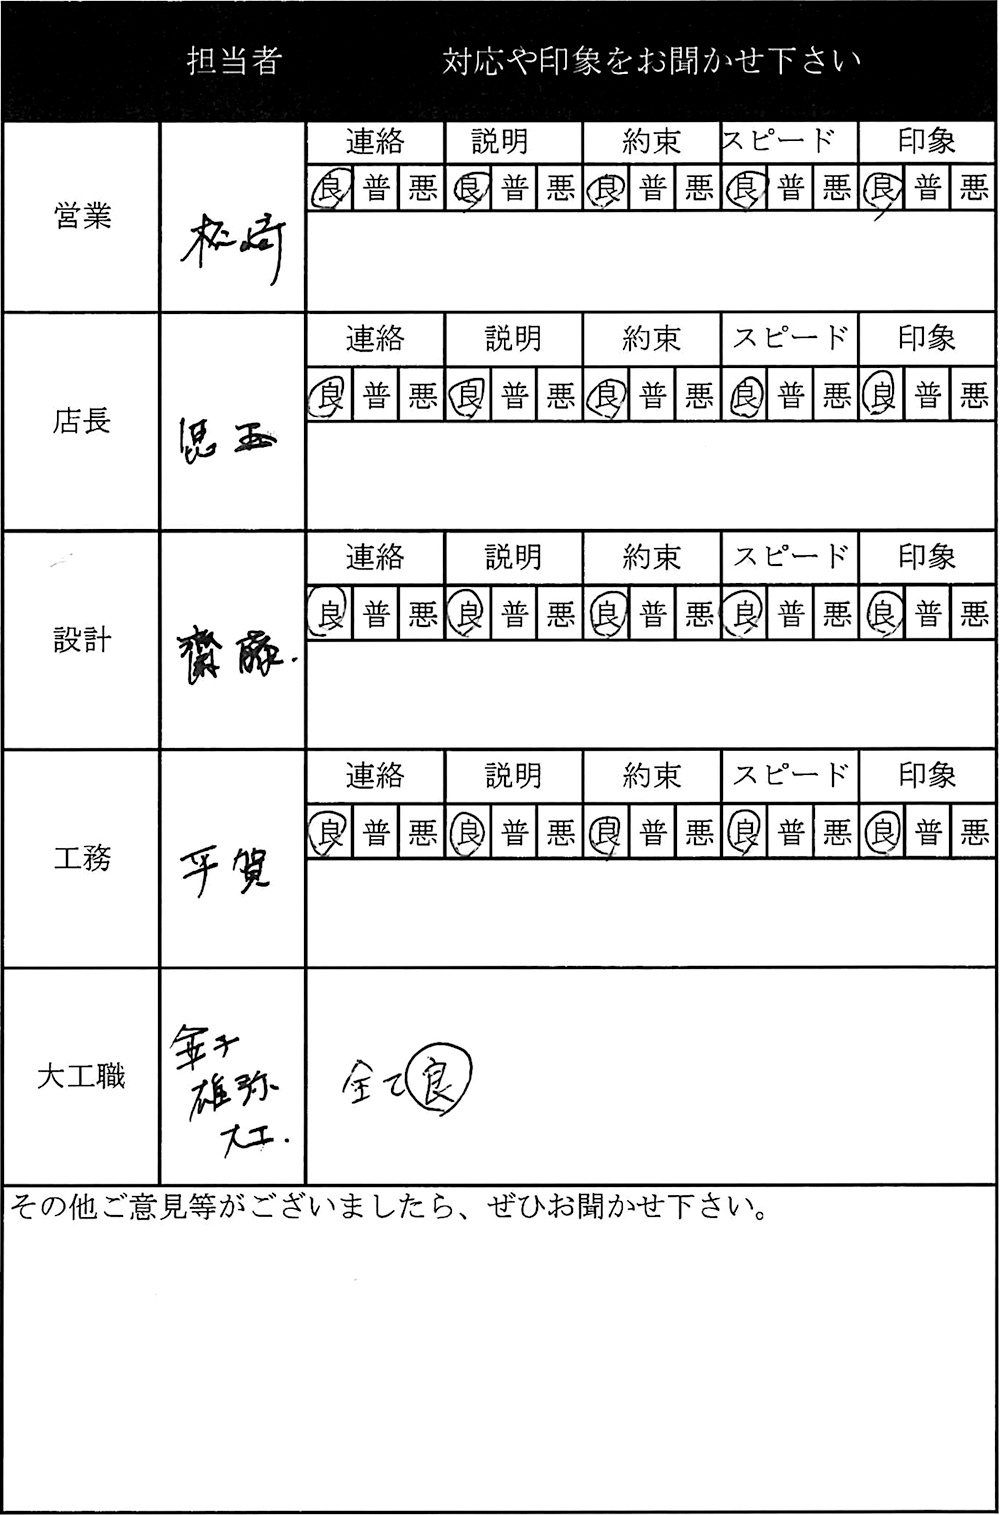 担当者 対応や印象をお聞かせ下さい
連絡 説明 約束 スピード 印象
良 普 悪 良 普 悪 良 普 悪 良 普 悪 良 普 悪
営業 松崎
連絡 説明 約束 スピード 印象
良 普 悪 良 普 悪 良 普 悪 良 普 悪 良 普 悪
店長 児玉
連絡 説明 約束 スピード 印象
良 普 悪 良 普 悪 良 普 悪 良 普 悪 良 普 悪
設計 齋藤.
連絡 説明 約束 スピード 印象
良 普 悪 良 普 悪 良 普 悪 良 普 悪 良 普 悪
工務 平賀
大工職
金子
雄弥
大工.
全て良
その他ご意見等がございましたら、ぜひお聞かせ下さい。